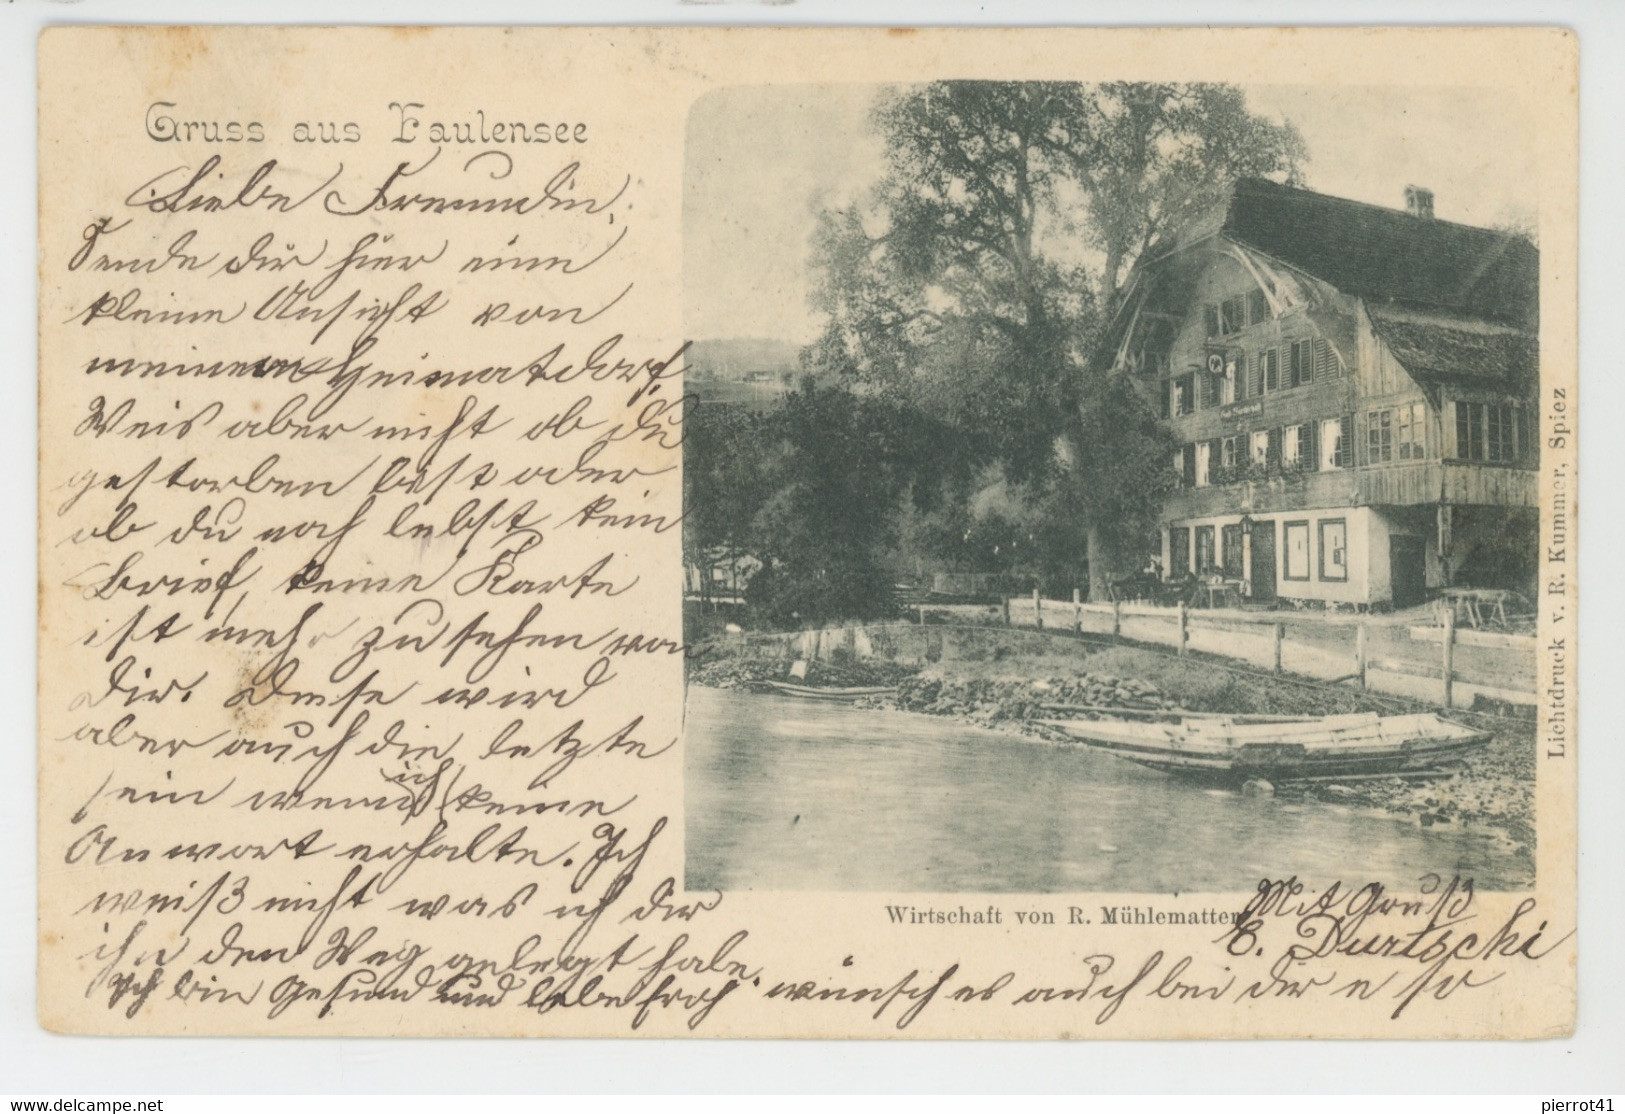 Gruss aus Faulensee
Liebe Freundin,
Sende dir hier eine
kleine Ansicht von
meinem Heimatdorf,
Weis aber nicht ob du
gestorben bist oder
ob du noch lebst, kein
Brief, keine Karte
ist mehr zu sehen von
dir. Diese wird
aber auch die letzte
sein wenn ich keine
Anwort erhalte. Ich
weiß nicht was ich dir
in den Weg gelegt habe.
Ich bin Gesund und lebe froh wünsch es auch bei dir e so
Mit Gruß
C. Durtschi
Wirtschaft von R. Mühlematter
Lichtdruck v. R. Kummer, Spiez
delcampe.net
pierrot41